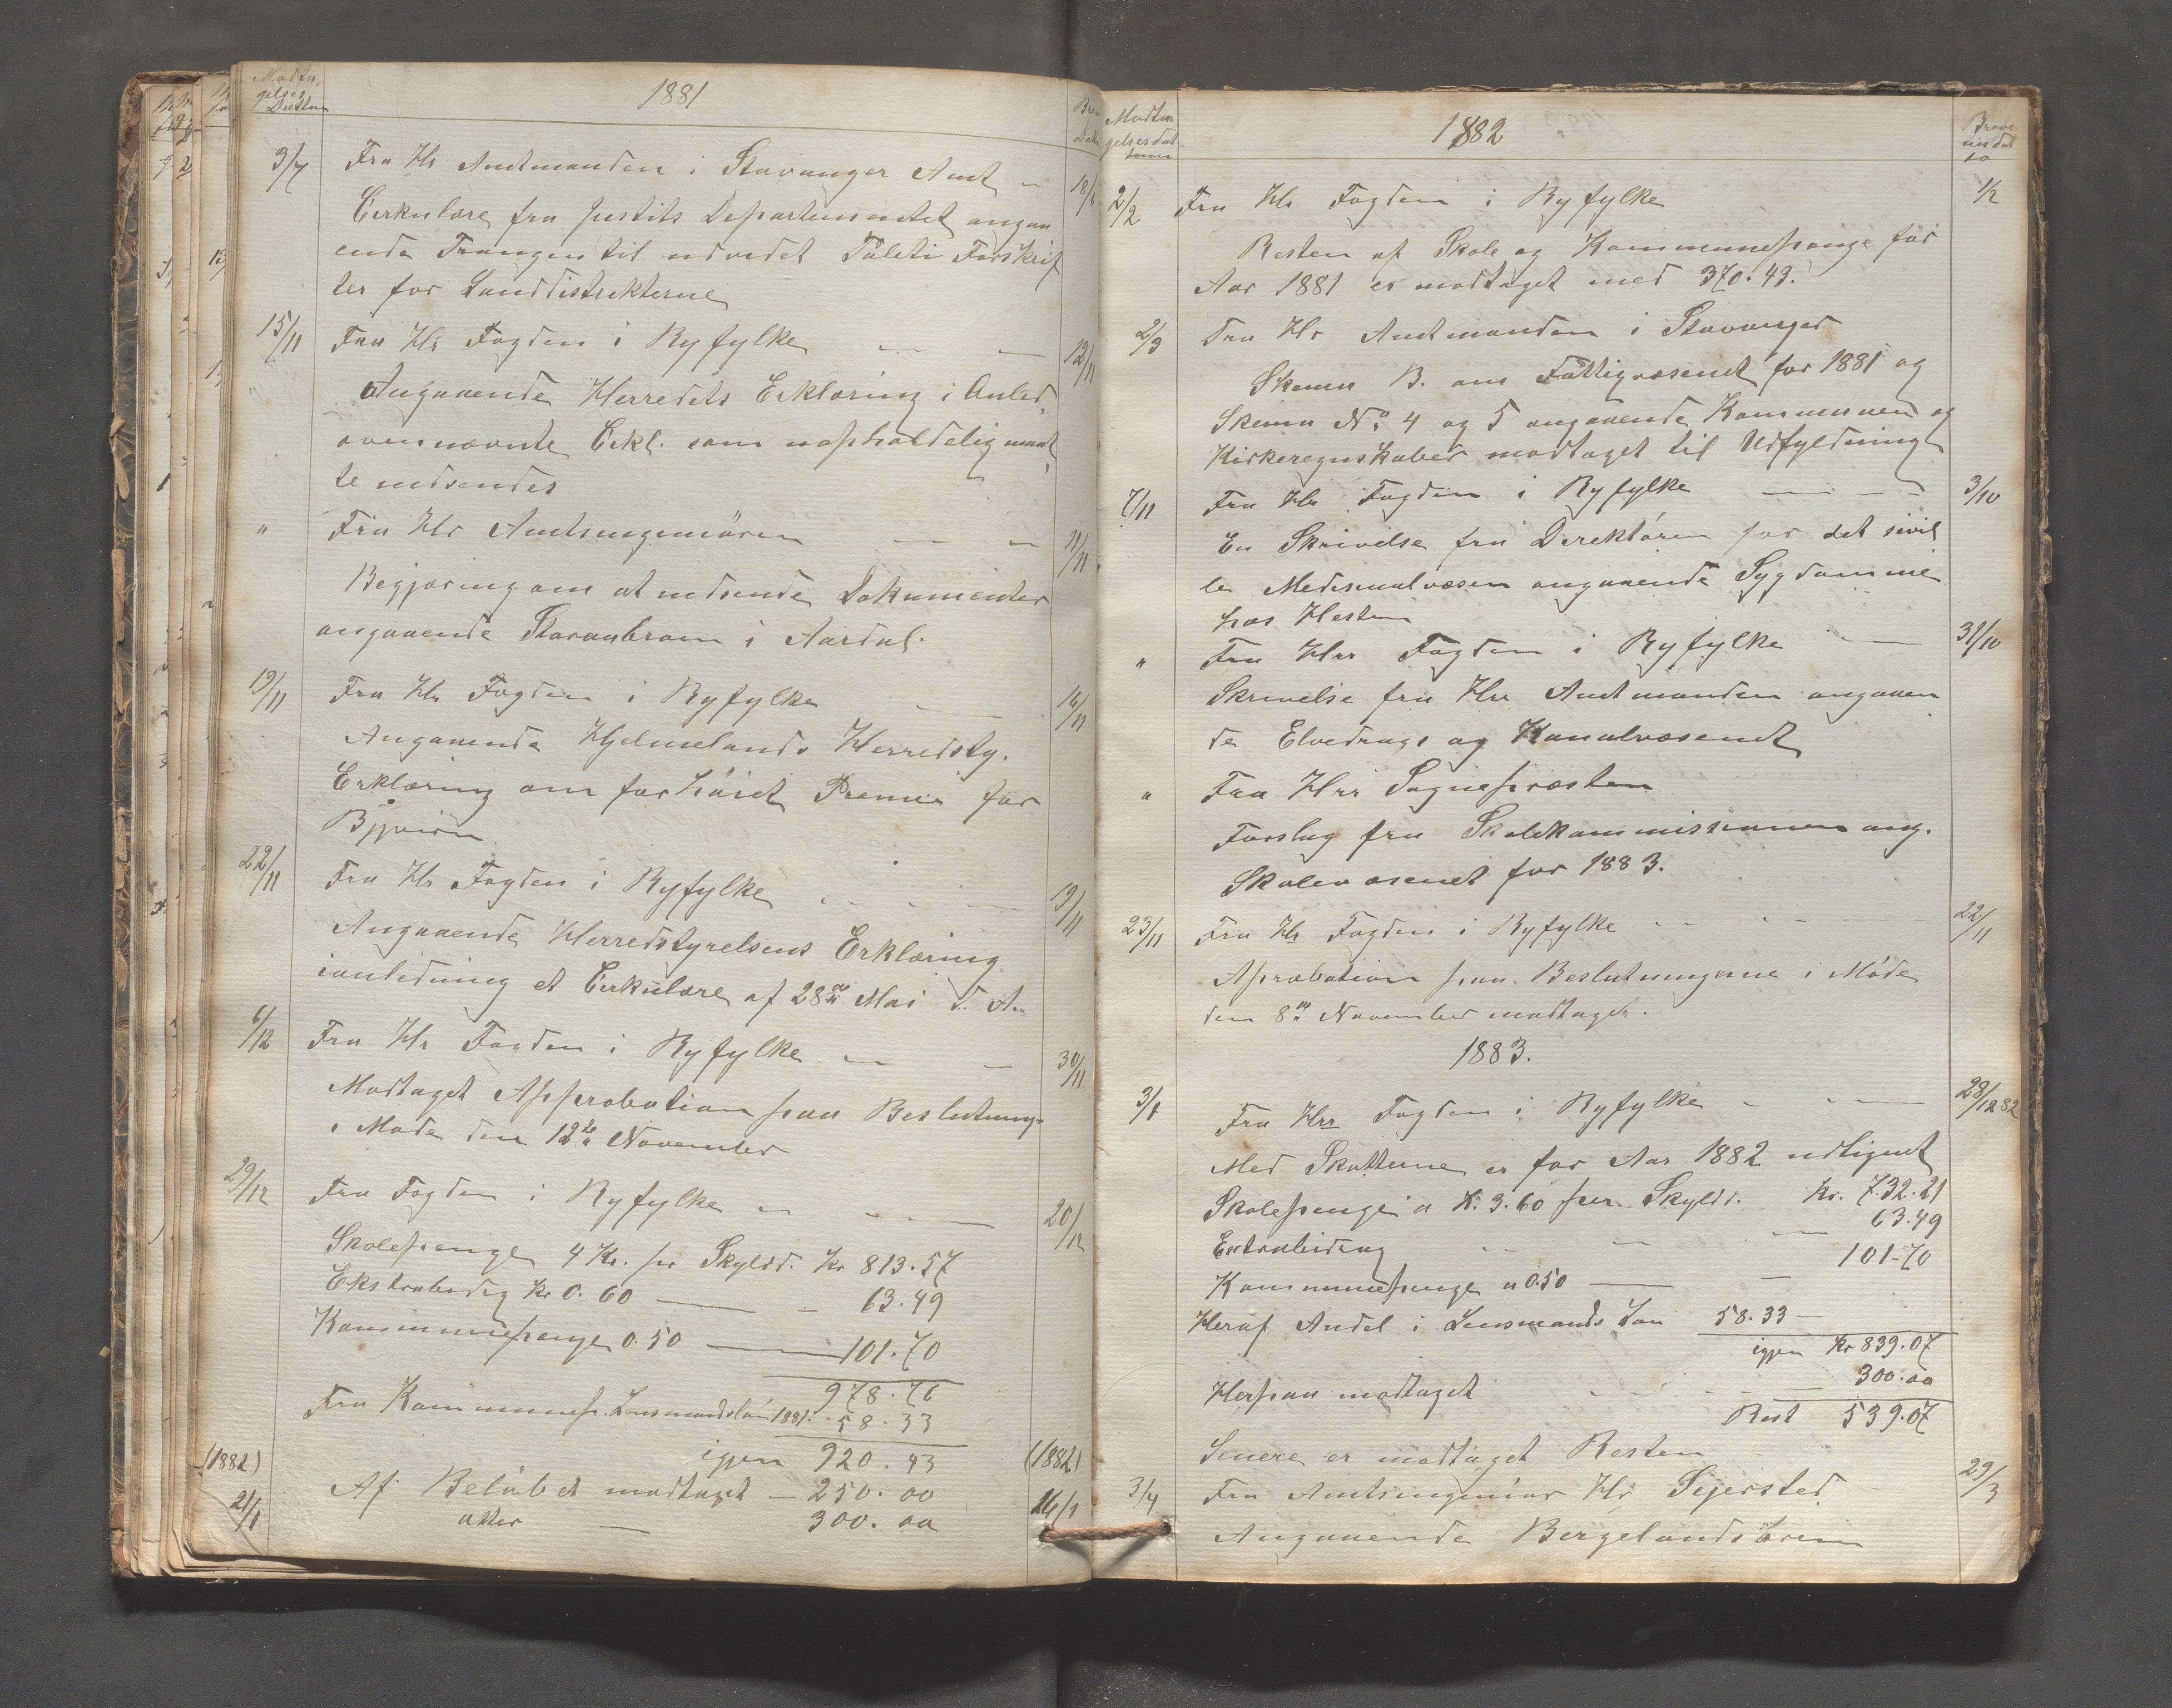 Modta-
gelses
Datum
1881
3/7
Fra Hr Amtmanden i Stavanger Amt
18/6
Cirkulære fra Justits Departementet angaa
ende Trangen til udvidet Politi Forskrif
ter for Landdistrikterne
15/11
Fra Hr Fogden i Ryfylke
12/11
Angaaende Herredets Erklæring i Anled.
ovennævnte Cirkl. som uopholdelig maat
te indsendes
"
Fra Hr Amtsingeniören
11/11
Begjæring om at indsende Dokumenter
angaaende Storaabroen i Aardal.
19/11
Fra Hr Fogden i Ryfylke
16/11
Angaaende Hjelmelands Herredsty.
Erklæring om forhöiet Premie for
Bjørn
22/11
Fra Hr Fogden i Ryfylke
19/11
Angaaende Herredstyrelsens Erklæring
ianledning et Cirkulære af 28de Mai d. A.
6/12
Fra Hr Fogden i Ryfylke
30/11
Modtaget Approbation paa Beslutning.
i Möde den 12te November
29/12
Fra Fogden i Ryfylke
20/12
Skolepenge 4 Kr. pr Skyldd. Kr 813.57
Ekstrabidrg Kr 0.60 — 63.49
Kommunepenge 0.50 — 101.70
978.76
Fra Kommunep. Lensmandslön 1881. 58.33
igjen 920.43
(1882)
(1882)
Af Belöbet modtaget — 250.00
21/1
atter — 300.00
16/1
Modta
gelsesdat
tum
1882
Breve
nes Dat
to
2/2
Fra Hr Fogden i Ryfylke
1/2
Resten af Skole og Kommunepenge for
Aar 1881 er modtaget med 370.43.
2/3
Fra Hr Amtmanden i Stavanger
Skema B. om Fattigvæsenet for 1881 og
Skema No 4 og 5 angaaende Kommunen og
Kirkeregnskaber modtaget til Udfyldning
7/11
Fra Hr Fogden i Ryfylke
3/10
En Skrivelse fra Direktören for det sivil
le Medisinalvæsen angaaende Sygdomme
hos Hesten
"
Fra Hrr Fogden i Ryfylke
31/10
Skrivelse fra Hrr Amtmanden angaaen
de Elvedrags og Kanalvæsenet
"
Fra Hrr Sognepræsten
Forslag fra Skolekommissionen ang.
Skolevæsenet for 1883.
23/11
Fra Hr Fogden i Ryfylke
22/11
Aprobation paa Beslutningerne i Möde
den 8de November modtaget.
1883.
3/1
Fra Hrr Fogden i Ryfylke
28/12 82
Med Skatterne er for Aar 1882 udlignet
Skolepenge a K. 3.60 per. Skyldd. Kr. 732.21
Extrabidrag — 63.49
Kommunepenge a 0.50 — 101.70
Heraf Andel i Lensmands Lön 58.33
igjen Kr 839.07
Herpaa modtaget 300.00
Rest 539.07
Senere er modtaget Resten
3/4
Fra Amtsingeniör Hr Sejersted
29/3
Angaaende Bergelandsbroen